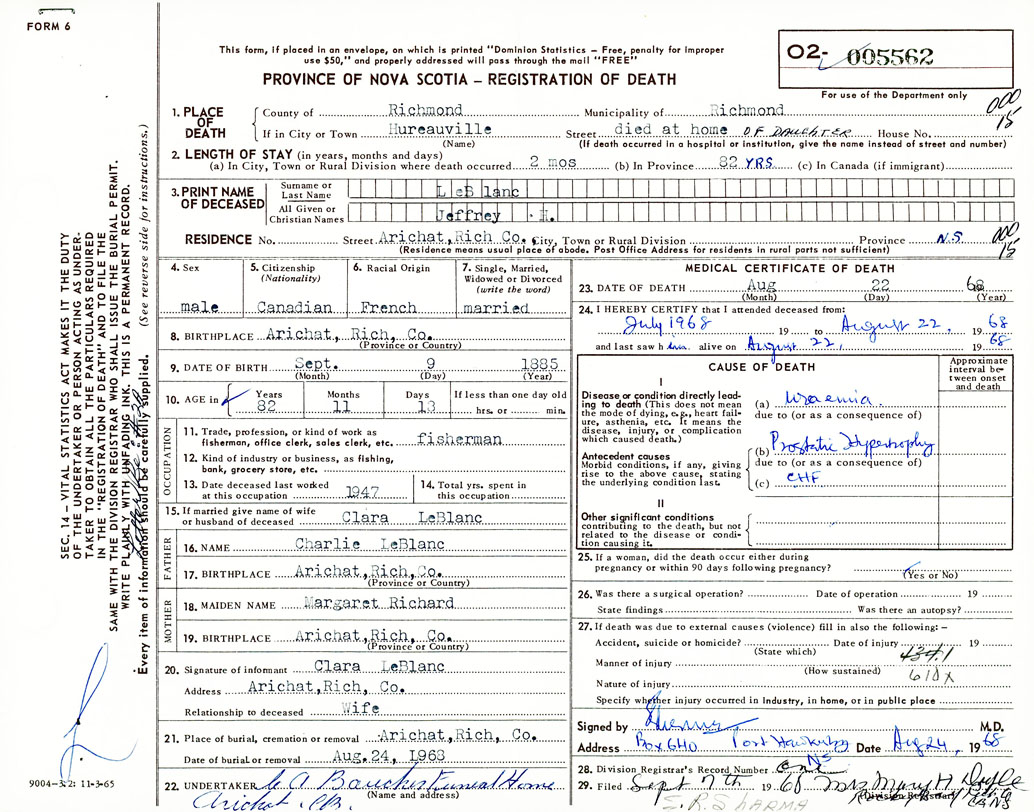 FORM 6
This form, if placed in an envelope, on which is printed "Dominion Statistics – Free, penalty for improper
use $50," and properly addressed will pass through the mail "FREE"
PROVINCE OF NOVA SCOTIA – REGISTRATION OF DEATH
O2- 005562
For use of the Department only
1. PLACE OF DEATH County of Richmond Municipality of Richmond 000 15
If in City or Town Hureauville Street died at home OF DAUGHTER House No.
(Name) (If death occurred in a hospital or institution, give the name instead of street and number)
2. LENGTH OF STAY (in years, months and days)
(a) In City, Town or Rural Division where death occurred 2 mos (b) In Province 82 YRS (c) In Canada (if immigrant)
3. PRINT NAME OF DECEASED Surname or Last Name LeBlanc
All Given or Christian Names Jeffrey H.
RESIDENCE No. Street Arichat, Rich Co. City, Town or Rural Division Province N.S. 000 15
(Residence means usual place of abode. Post Office Address for residents in rural parts not sufficient)
4. Sex male
5. Citizenship (Nationality) Canadian
6. Racial Origin French
7. Single, Married, Widowed or Divorced (write the word) married
8. BIRTHPLACE Arichat, Rich, Co.
(Province or Country)
9. DATE OF BIRTH Sept. 9 1885
(Month) (Day) (Year)
10. AGE in Years Months Days If less than one day old
82 11 13 hrs. or min.
OCCUPATION
11. Trade, profession, or kind of work as
fisherman, office clerk, sales clerk, etc. fisherman
12. Kind of industry or business, as fishing,
bank, grocery store, etc.
13. Date deceased last worked at this occupation 1947
14. Total yrs. spent in this occupation
15. If married give name of wife
or husband of deceased Clara LeBlanc
FATHER
16. NAME Charlie LeBlanc
17. BIRTHPLACE Arichat, Rich, Co.
(Province or Country)
MOTHER
18. MAIDEN NAME Margaret Richard
19. BIRTHPLACE Arichat, Rich, Co.
(Province or Country)
20. Signature of informant Clara LeBlanc
Address Arichat, Rich, Co.
Relationship to deceased Wife
21. Place of burial, cremation or removal Arichat, Rich, Co.
Date of burial or removal Aug. 24, 1968
22. UNDERTAKER C A Boucher Funeral Home
(Name and address)
Arichat
MEDICAL CERTIFICATE OF DEATH
23. DATE OF DEATH Aug 22 68
(Month) (Day) (Year)
24. I HEREBY CERTIFY that I attended deceased from:
July 1968 19 to August 22, 19 68
and last saw h im alive on August 22, 19 68
CAUSE OF DEATH
Approximate interval between onset and death
I
Disease or condition directly leading to death (This does not mean
the mode of dying, e.g., heart failure, asthenia, etc. It means the
disease, injury, or complication
which caused death.)
(a) Uraemia
due to (or as a consequence of)
Antecedent causes
Morbid conditions, if any, giving
rise to the above cause, stating
the underlying condition last.
(b) Prostatic Hypertrophy
due to (or as a consequence of)
(c) CHF
II
Other significant conditions
contributing to the death, but not
related to the disease or condition causing it.
25. If a woman, did the death occur either during
pregnancy or within 90 days following pregnancy?
(Yes or No)
26. Was there a surgical operation? Date of operation 19
State findings Was there an autopsy?
27. If death was due to external causes (violence) fill in also the following: –
Accident, suicide or homicide? Date of injury 19
(State which) 434.1
Manner of injury
(How sustained) 610X
Nature of injury
Specify whether injury occurred in industry, in home, or in public place
Signed by M.D.
Address Box 640 Port Hawkesbury NS Date Aug 24, 19 68
28. Division Registrar's Record Number
29. Filed Sept 7th 1968 Mrs Mary H Doyle
(Division Registrar)
E.R. SHARMA
SEC. 14 – VITAL STATISTICS ACT MAKES IT THE DUTY
OF THE UNDERTAKER OR PERSON ACTING AS UNDERTAKER TO OBTAIN ALL THE PARTICULARS REQUIRED
IN THE "REGISTRATION OF DEATH" AND TO FILE THE
SAME WITH THE DIVISION REGISTRAR WHO SHALL ISSUE THE BURIAL PERMIT.
WRITE PLAINLY WITH UNFADING INK. THIS IS A PERMANENT RECORD.
Every item of information should be carefully supplied. (See reverse side for instructions.)
9004-3.2: 11-3-65